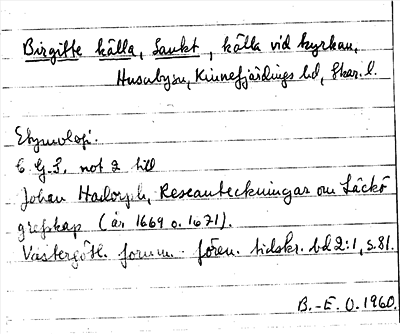 Birgitte källa, Sankt, källa vid kyrkan,
Husaby sn, Kinnefjärdings hd, Skar. l.
Etymologi:
C. G. S. not 2 till
Johan Hadorph, Reseanteckningar om Läckö
grefskap (år 1669 o. 1671).
Västergötl. fornm. fören. tidskr. bd 2:1, s. 81.
B.-E. O. 1960.